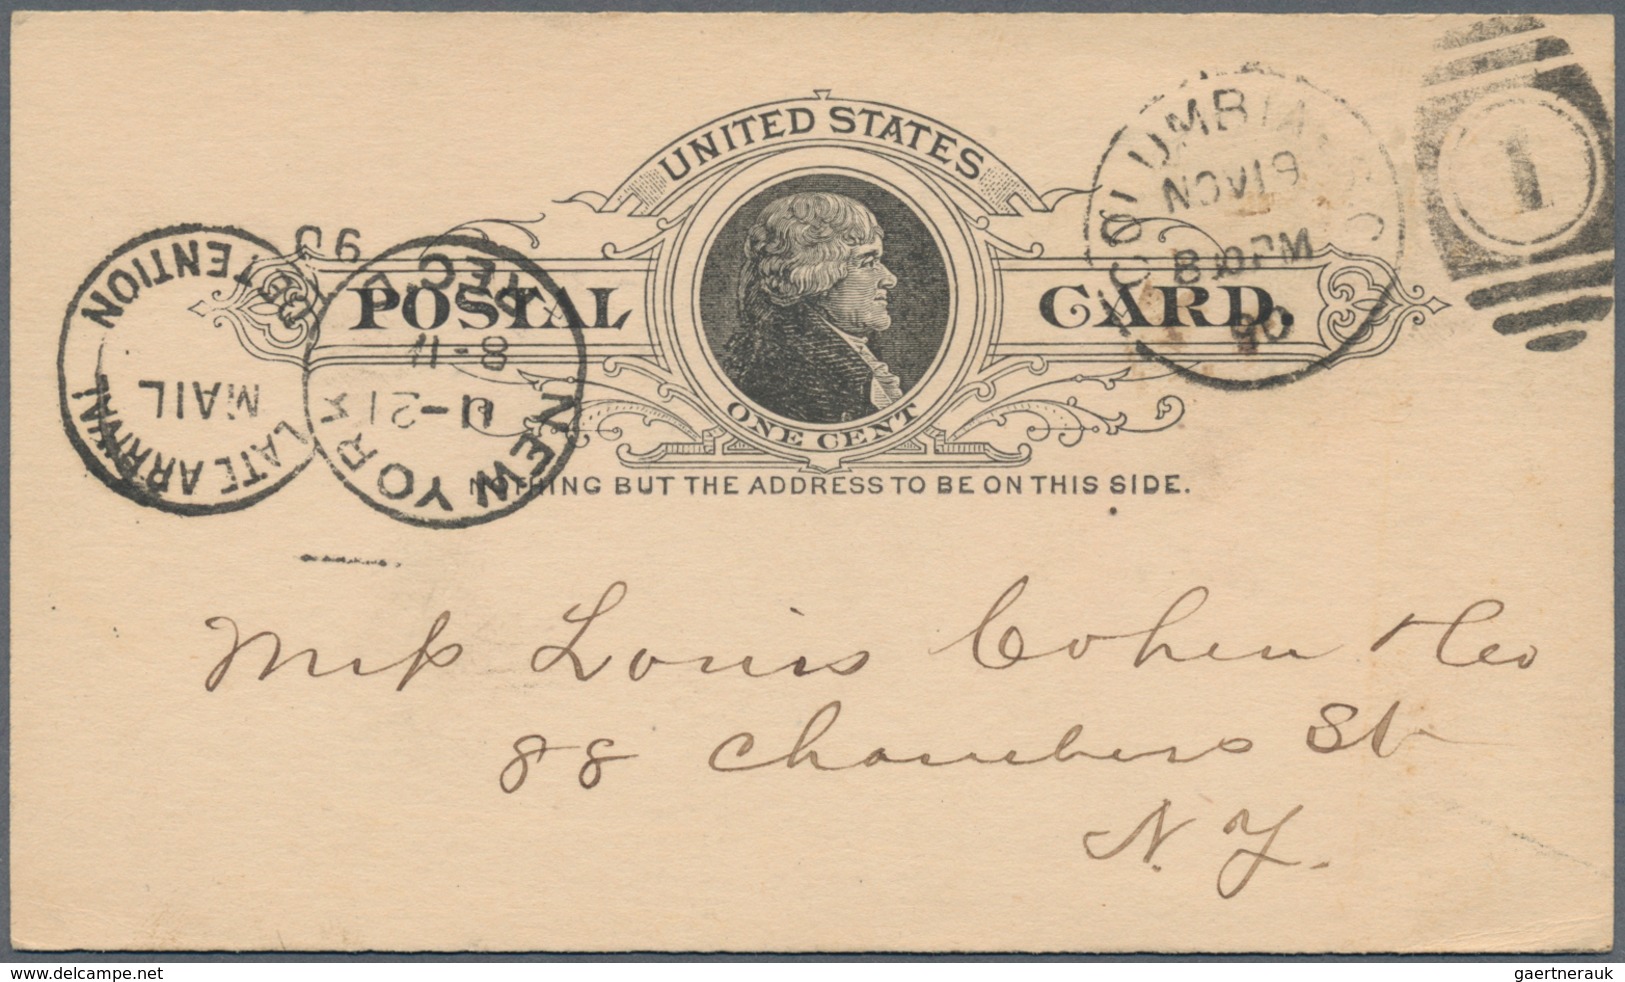 UNITED STATES
POSTAL CARD.
ONE CENT
NOTHING BUT THE ADDRESS TO BE ON THIS SIDE.
COLUMBIA
NOV 19
PM
90
1
NEW YORK
REC'D.
11-21
8-11
90
DETENTION
MAIL
LATE ARRIVAL
Louis Cohen & Co
88 Chambers St
N. Y.
www.delcampe.net
gaertnerauk